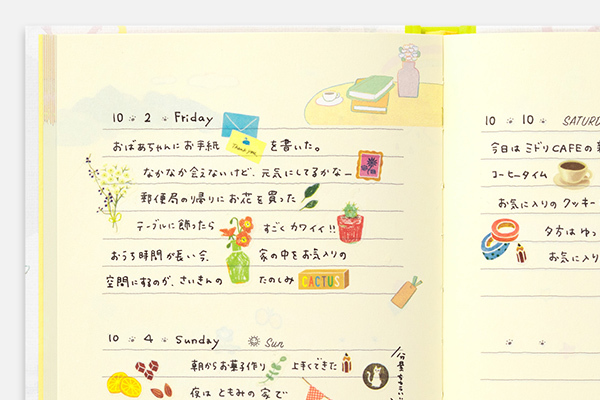 10 2 Friday
おばあちゃんにお手紙 Thank you を書いた。
なかなか会えないけど、元気にしてるかなー
郵便局の帰りにお花を買った
テーブルに飾ったら すごくカワイイ!!
おうち時間が長い今、 家の中をお気入りの
空間にするのが、さいきんの たのしみ CACTUS
10 4 Sunday Sun
朝からお菓子作り 上手くできた
夜は ともみの 家で
10 10 SATURD
今日はミドリCAFEの
コーヒータイム
お気に入りの クッキー
夕方は ゆっ
お気に入り